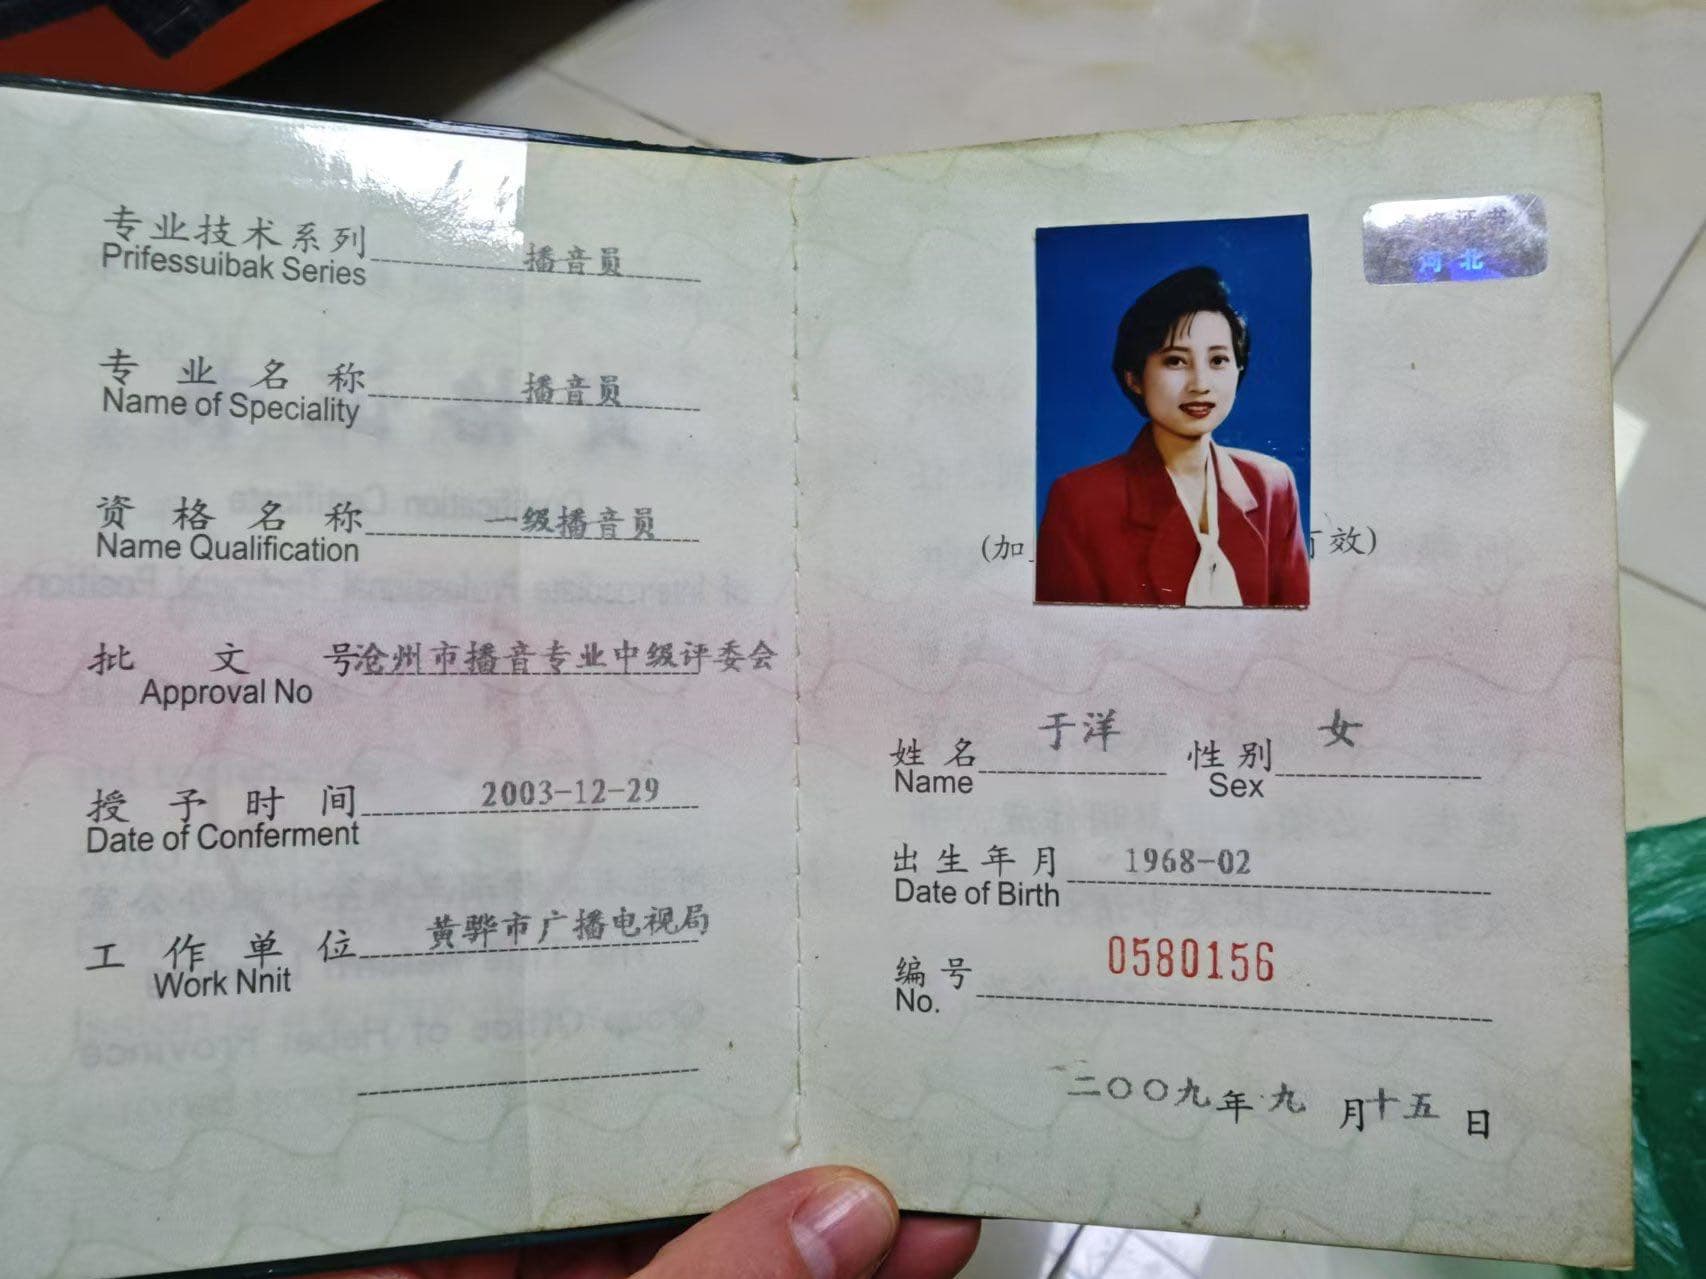 专业技术系列 播音员
Prifessuibak Series
专业名称 播音员
Name of Speciality
资格名称 一级播音员
Name Qualification
批文号 沧州市播音专业中级评委会
Approval No
授予时间 2003-12-29
Date of Conferment
工作单位 黄骅市广播电视局
Work Nnit
格证书
河北
(加 有效)
姓名 于洋 性别 女
Name Sex
出生年月 1968-02
Date of Birth
编号 0580156
No.
二〇〇九年九月十五日